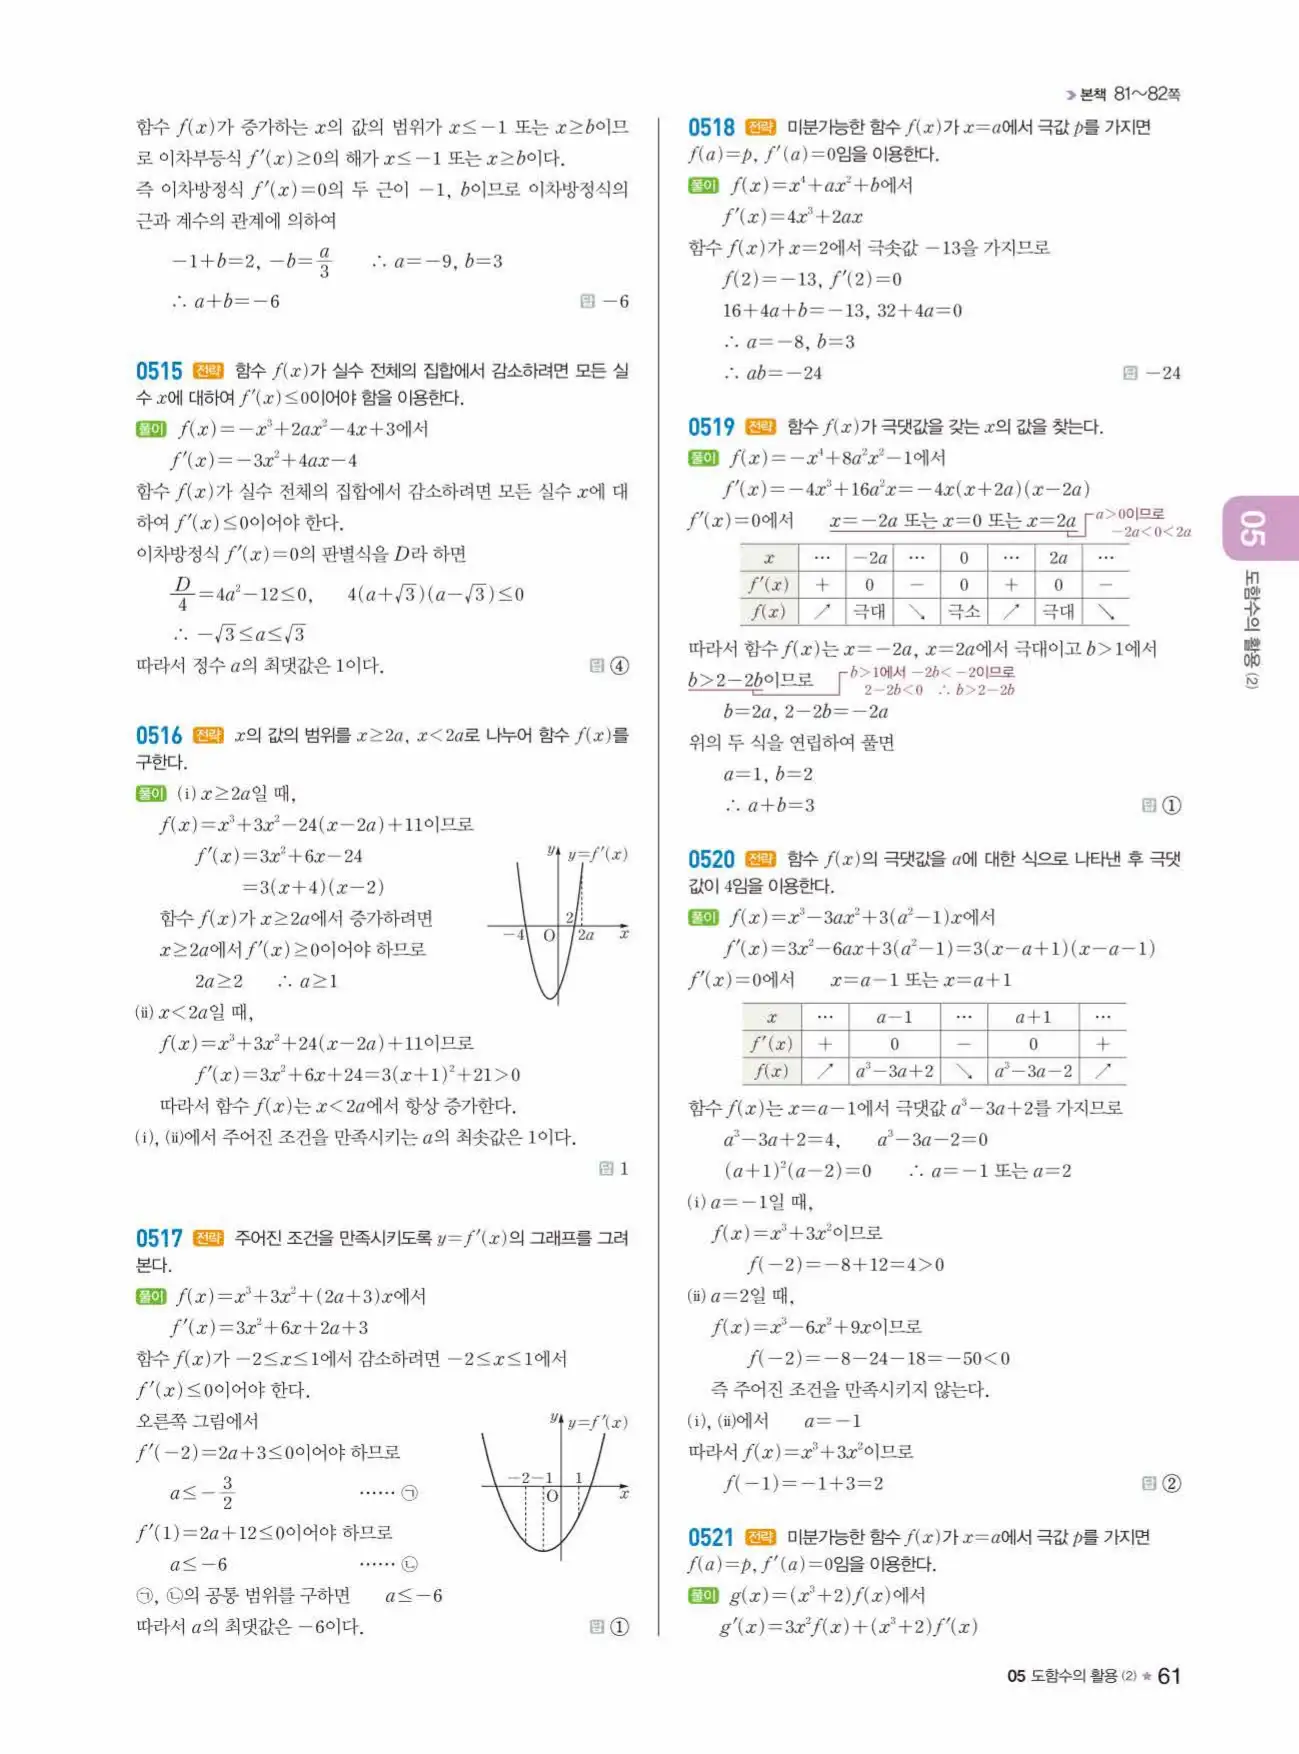 본책 81~82쪽
함수 f(x)가 증가하는 x의 값의 범위가 x≤-1 또는 x≥b이므
로 이차부등식 f'(x)≥0의 해가 x≤-1 또는 x≥b이다.
즉 이차방정식 f'(x)=0의 두 근이 -1, b이므로 이차방정식의
근과 계수의 관계에 의하여
-1+b=2, -b=a/3 ∴ a=-9, b=3
∴ a+b=-6 답 -6
0515 전략 함수 f(x)가 실수 전체의 집합에서 감소하려면 모든 실
수 x에 대하여 f'(x)≤0이어야 함을 이용한다.
풀이 f(x)=-x³+2ax²-4x+3에서
f'(x)=-3x²+4ax-4
함수 f(x)가 실수 전체의 집합에서 감소하려면 모든 실수 x에 대
하여 f'(x)≤0이어야 한다.
이차방정식 f'(x)=0의 판별식을 D라 하면
D/4=4a²-12≤0, 4(a+√3)(a-√3)≤0
∴ -√3≤a≤√3
따라서 정수 a의 최댓값은 1이다. 답 ④
0516 전략 x의 값의 범위를 x≥2a, x<2a로 나누어 함수 f(x)를
구한다.
풀이 (i) x≥2a일 때,
f(x)=x³+3x²-24(x-2a)+11이므로
f'(x)=3x²+6x-24
=3(x+4)(x-2)
함수 f(x)가 x≥2a에서 증가하려면
x≥2a에서 f'(x)≥0이어야 하므로
2a≥2 ∴ a≥1
y y=f'(x)
-4 O 2 2a x
(ii) x<2a일 때,
f(x)=x³+3x²+24(x-2a)+11이므로
f'(x)=3x²+6x+24=3(x+1)²+21>0
따라서 함수 f(x)는 x<2a에서 항상 증가한다.
(i), (ii)에서 주어진 조건을 만족시키는 a의 최솟값은 1이다.
답 1
0517 전략 주어진 조건을 만족시키도록 y=f'(x)의 그래프를 그려
본다.
풀이 f(x)=x³+3x²+(2a+3)x에서
f'(x)=3x²+6x+2a+3
함수 f(x)가 -2≤x≤1에서 감소하려면 -2≤x≤1에서
f'(x)≤0이어야 한다.
오른쪽 그림에서
f'(-2)=2a+3≤0이어야 하므로
a≤-3/2 …… ㉠
f'(1)=2a+12≤0이어야 하므로
a≤-6 …… ㉡
y y=f'(x)
-2 -1 O 1 x
㉠, ㉡의 공통 범위를 구하면 a≤-6
따라서 a의 최댓값은 -6이다. 답 ①
0518 전략 미분가능한 함수 f(x)가 x=a에서 극값 p를 가지면
f(a)=p, f'(a)=0임을 이용한다.
풀이 f(x)=x⁴+ax²+b에서
f'(x)=4x³+2ax
함수 f(x)가 x=2에서 극솟값 -13을 가지므로
f(2)=-13, f'(2)=0
16+4a+b=-13, 32+4a=0
∴ a=-8, b=3
∴ ab=-24 답 -24
0519 전략 함수 f(x)가 극댓값을 갖는 x의 값을 찾는다.
풀이 f(x)=-x⁴+8a²x²-1에서
f'(x)=-4x³+16a²x=-4x(x+2a)(x-2a)
f'(x)=0에서 x=-2a 또는 x=0 또는 x=2a a>0이므로
-2a<0<2a
x … -2a … 0 … 2a …
f'(x) + 0 - 0 + 0 -
f(x) ↗ 극대 ↘ 극소 ↗ 극대 ↘
따라서 함수 f(x)는 x=-2a, x=2a에서 극대이고 b>1에서
b>2-2b이므로 b>1에서 -2b<-2이므로
2-2b<0 ∴ b>2-2b
b=2a, 2-2b=-2a
위의 두 식을 연립하여 풀면
a=1, b=2
∴ a+b=3 답 ①
0520 전략 함수 f(x)의 극댓값을 a에 대한 식으로 나타낸 후 극댓
값이 4임을 이용한다.
풀이 f(x)=x³-3ax²+3(a²-1)x에서
f'(x)=3x²-6ax+3(a²-1)=3(x-a+1)(x-a-1)
f'(x)=0에서 x=a-1 또는 x=a+1
x … a-1 … a+1 …
f'(x) + 0 - 0 +
f(x) ↗ a³-3a+2 ↘ a³-3a-2 ↗
함수 f(x)는 x=a-1에서 극댓값 a³-3a+2를 가지므로
a³-3a+2=4, a³-3a-2=0
(a+1)²(a-2)=0 ∴ a=-1 또는 a=2
(i) a=-1일 때,
f(x)=x³+3x²이므로
f(-2)=-8+12=4>0
(ii) a=2일 때,
f(x)=x³-6x²+9x이므로
f(-2)=-8-24-18=-50<0
즉 주어진 조건을 만족시키지 않는다.
(i), (ii)에서 a=-1
따라서 f(x)=x³+3x²이므로
f(-1)=-1+3=2 답 ②
0521 전략 미분가능한 함수 f(x)가 x=a에서 극값 p를 가지면
f(a)=p, f'(a)=0임을 이용한다.
풀이 g(x)=(x³+2)f(x)에서
g'(x)=3x²f(x)+(x³+2)f'(x)
05
도함수의 활용 (2)
05 도함수의 활용 (2) ★ 61